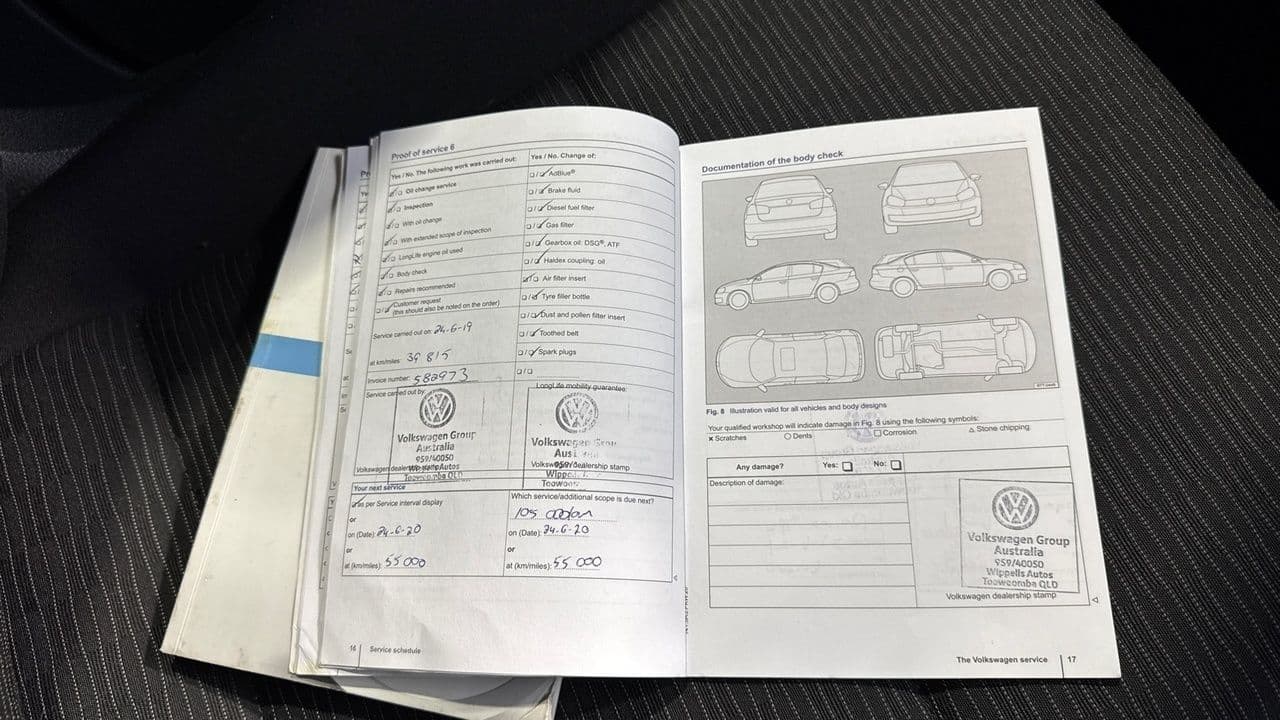 Proof of service 6
Yes / No. The following work was carried out:
Oil change service
Inspection
With oil change
With extended scope of inspection
LongLife engine oil used
Body check
Repairs recommended
Customer request
(this should also be noted on the order)
Service carried out on: 24-6-19
at km/miles: 39 815
Invoice number: 582973
Service carried out by:
Volkswagen Group
Australia
959/40050
Wippells Autos
Toowoomba QLD
Volkswagen dealership stamp
Yes / No. Change of:
AdBlue®
Brake fluid
Diesel fuel filter
Gas filter
Gearbox oil: DSG®, ATF
Haldex coupling: oil
Air filter insert
Tyre filler bottle
Dust and pollen filter insert
Toothed belt
Spark plugs
LongLife mobility guarantee:
Volkswagen
959/
Volkswagen dealership stamp
Your next service
as per Service interval display
or
on (Date): 24-6-20
or
at (km/miles): 55 000
Which service/additional scope is due next?
on (Date): 24.6-20
or
at (km/miles): 55 000
16 Service schedule
Documentation of the body check
Fig. 8 Illustration valid for all vehicles and body designs
Your qualified workshop will indicate damage in Fig. 8 using the following symbols:
× Scratches ○ Dents □ Corrosion △ Stone chipping
Any damage? Yes: No:
Description of damage:
Volkswagen Group
Australia
959/40050
Wippells Autos
Toowoomba QLD
Volkswagen dealership stamp
The Volkswagen service 17